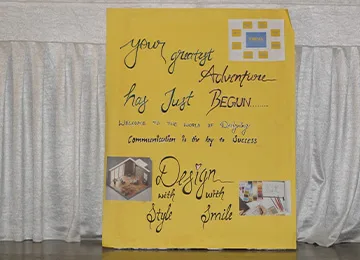 your greatest
Adventure
has Just BEGUN.......
WELCOME TO THE WORLD OF Designing
Communication is the key to Success
Design
with with
Style Smile